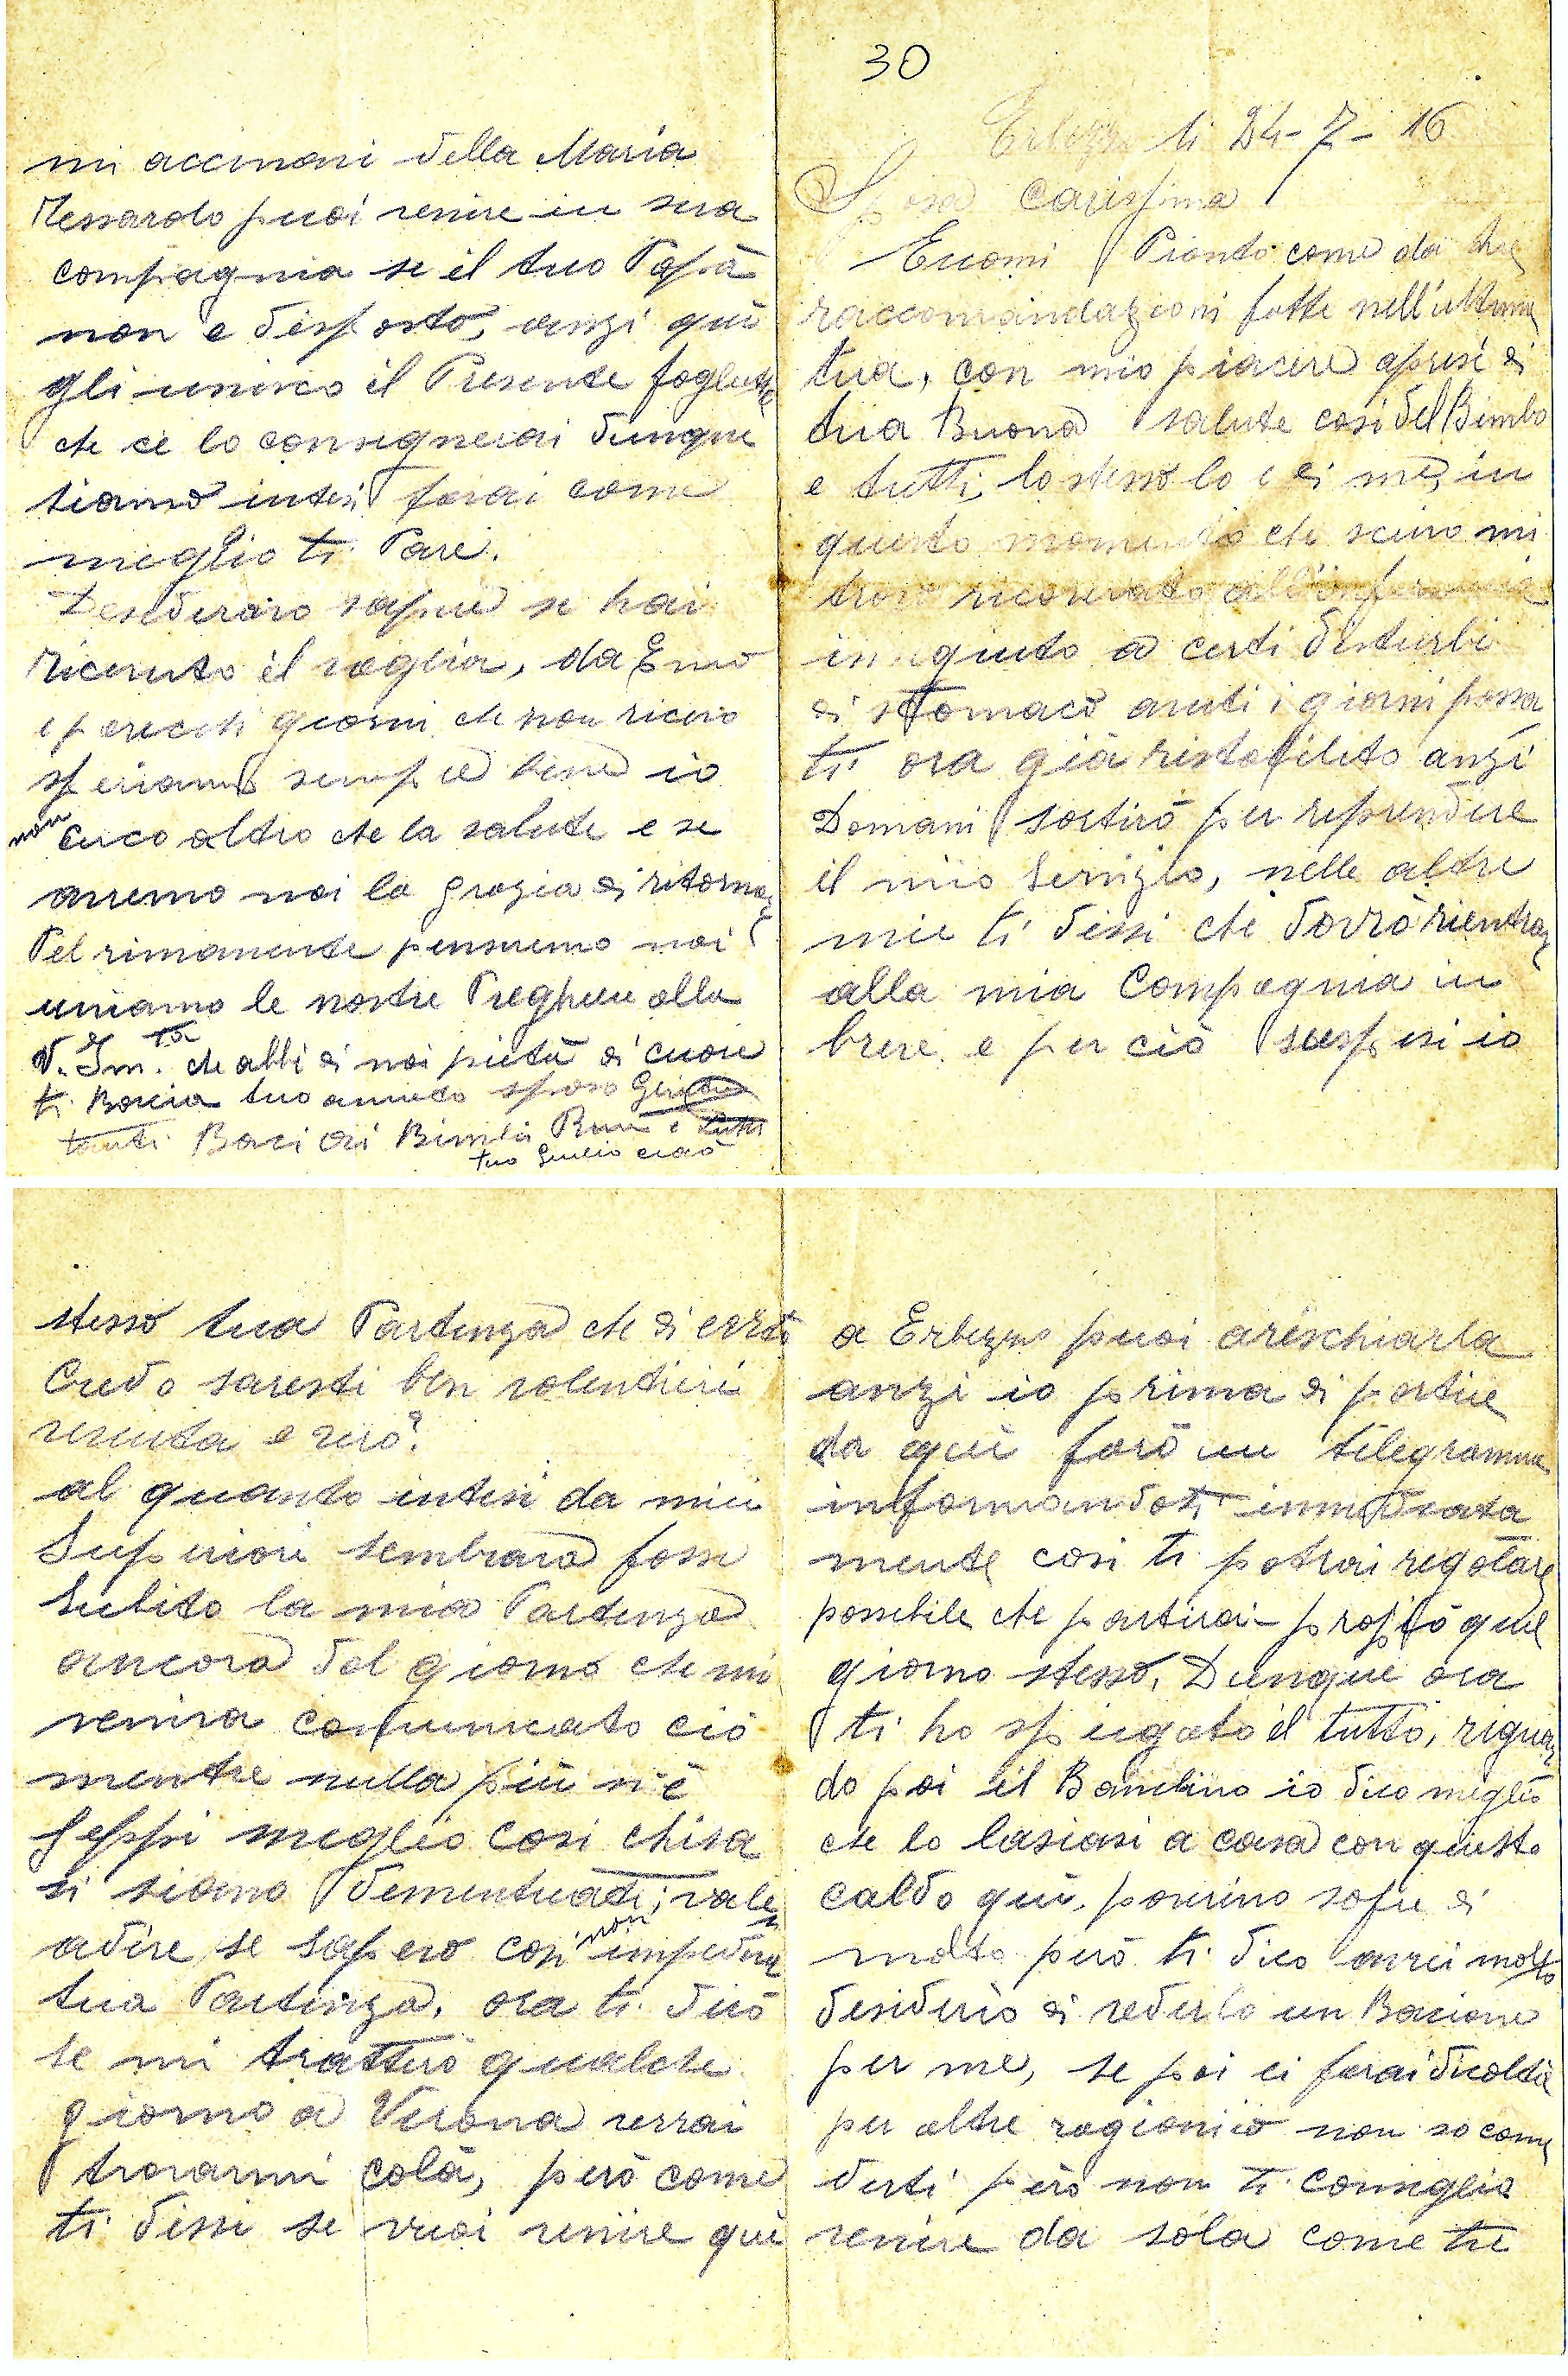 30
Erbezzo li 24-7-16
Sposa Carissima
Eccomi Pronto come da tue
raccomandazioni fatte nell'ultima
tua, con mio piacere apresi di
tua Buona salute cosi del Bimbo
e tutti, lo stesso lo e di me, in
questo momento che scrivo mi
trovo ricoverato all'infermeria
in seguito a certi disturbi
di stomaco avuti i giorni passa
ti ora già ristabilito anzi
Domani sortirò per riprendere
il mio servizio, nelle altre
mie ti dissi che dovrò rientrar
alla mia Compagnia in
breve e per ciò sospesi io
stesso tua Partenza che di certo
Credo saresti ben volentieri
venuta e vero?
al quanto intesi da miei
Superiori sembrava fosse
subito la mia Partenza
ancora dal giorno che mi
veniva comunicato ciò
mentre nulla più n'è
seppi meglio cosi chisa
si siano dimenticati, vale
adire se sapevo cosi non impediva
tua Partenza, ora ti dirò
se mi tratterò qualche
giorno a Verona verrai
trovarmi colà, però come
ti dissi se vuoi venire qui
a Erbezzo puoi arischiarla
anzi io prima di partire
da qui farò un telegramma
informandoti immediata
mente cosi ti potrai regolare
possibile che partirai propio quel
giorno stesso. Dunque ora
ti ho spiegato il tutto, riguar
do poi il Bambino io dico meglio
che lo lasiasi a casa con questo
caldo qui, poverino sofre di
molto però ti dico avrei molto
desiderio di vederlo un Bacione
per me, se poi ci farai dicoltà
per altre ragioni io non so come
dirti però non ti consiglio
venire da sola come tu
mi accenavi della Maria
Massarolo puoi venire in sua
compagnia se il tuo Papà
non e disposto, anzi qui
gli unisco il Presente foglietto
che ce lo consegnerai dunque
siamo intesi farai come
meglio ti Pare.
Desideravo sapere se hai
ricevuto il vaglia, da Emo
e parecchi giorni che non ricevo
speriamo sempre bene io
non cerco altro che la salute e se
avremo noi la grazia di ritornar
Pel rimanente penseremo noi
uniamo le nostre Preghiere alla
V. Im.ta che abbi di noi pietà di cuore
ti Bacia tuo amico sposo Giulio
tanti Baci ai Bimbi Rina e tutti
tuo Giulio ciaò